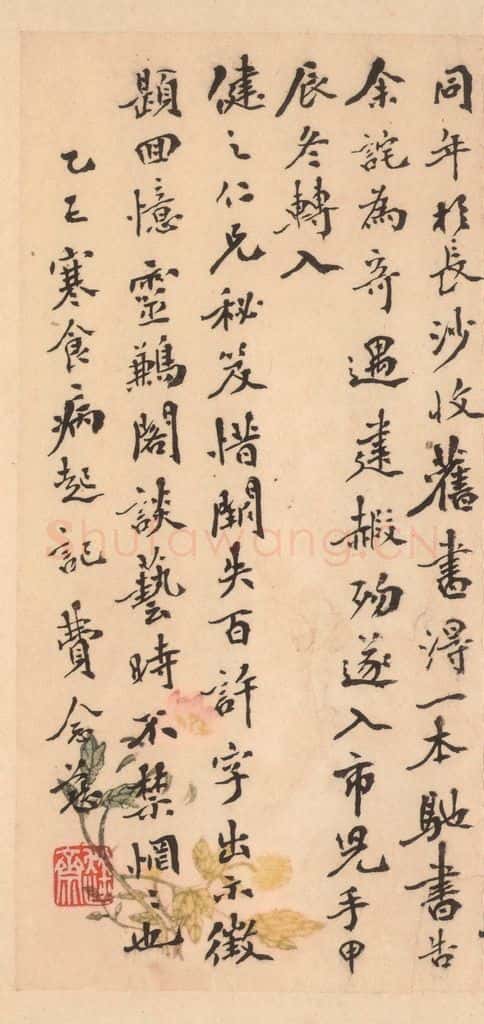 同年於長沙收舊書得一本馳書告
余詫為奇遇建赮歿遂入市兒手甲
辰冬轉入
健之仁兄秘笈惜闕失百許字出示徵
題回憶靈鶼閣談藝時不禁惘〻也
乙巳寒食病起記 費念慈
Shufawang.CN